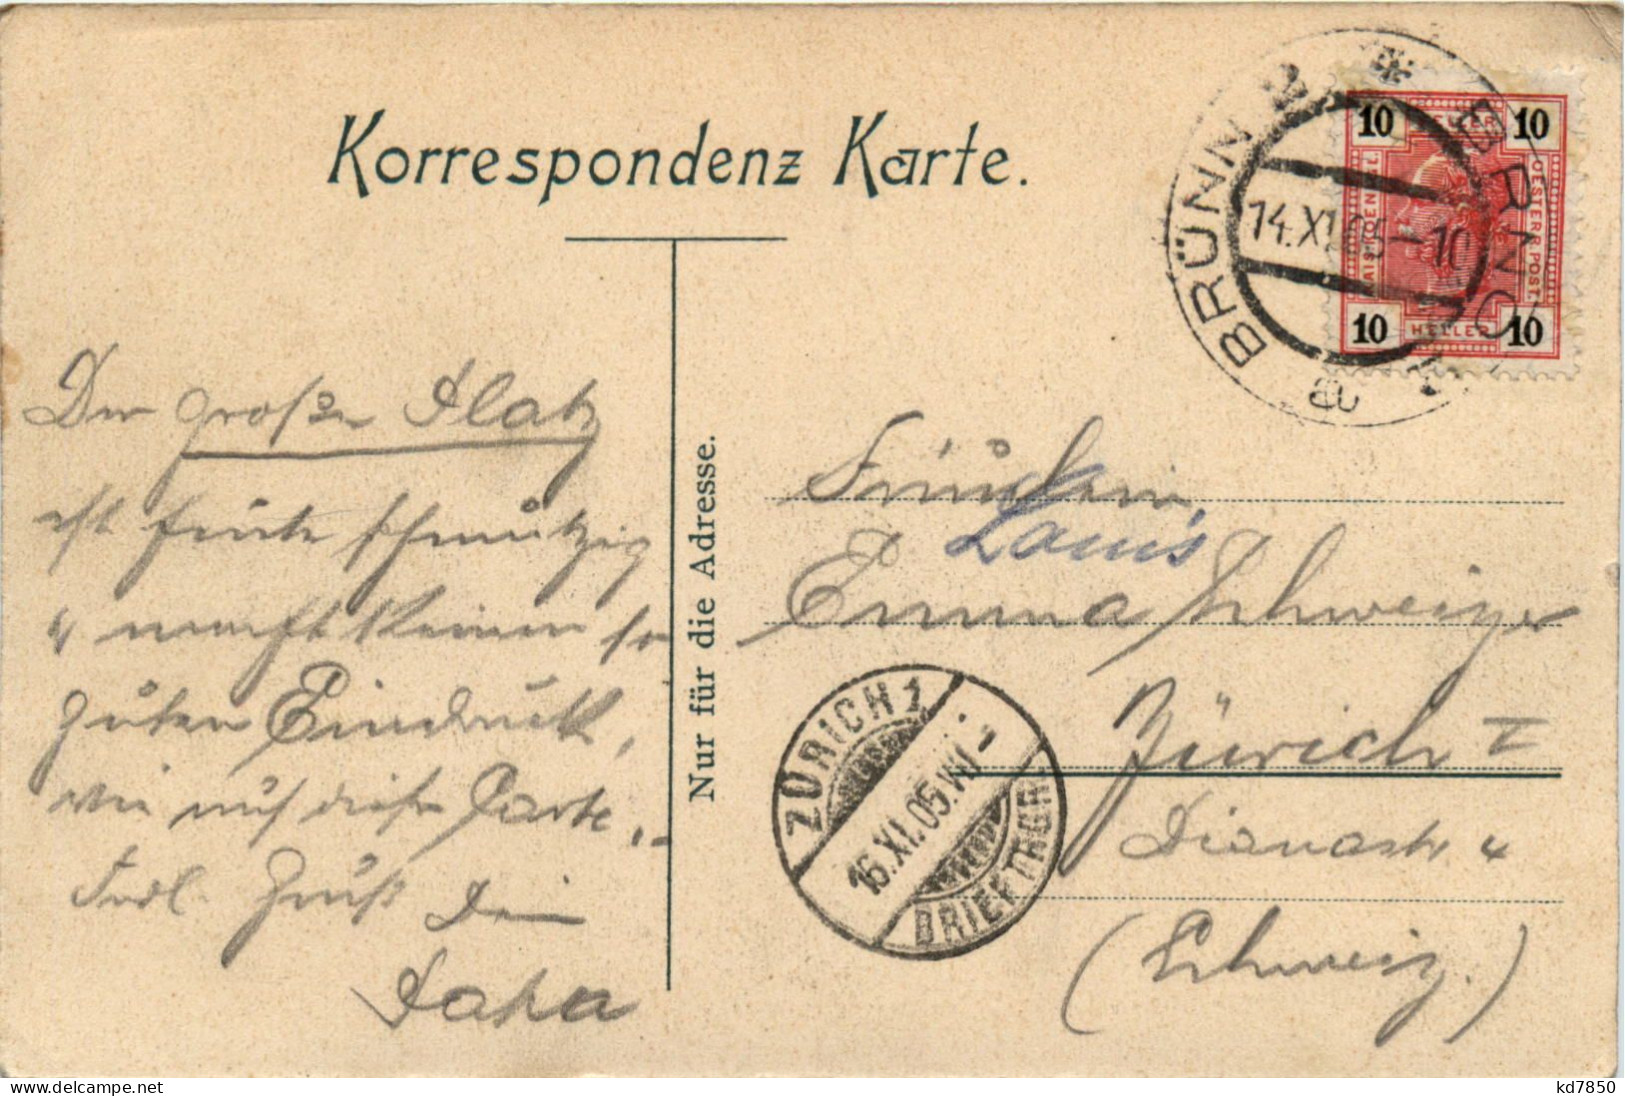 Korrespondenz Karte.
BRÜNN 2 * BRNO
14.XI.05-10
10 HELLER 10
KAIS. KOENIGL.
OESTERR. POST.
10 HELLER 10
Nur für die Adresse.
Der große Platz
ist heute schmutzig
u macht keinen so
guten Eindruck,
wie auf dieser Carte.
Frdl. Gruß Dein
Papa
Fräulein
Louis
Emma Schweizer
Zürich I
Dianastr 4
(Schweiz.)
ZÜRICH 1
16.XI.05.VII-1
BRIEFTRGR.
delcampe.net
kd7850